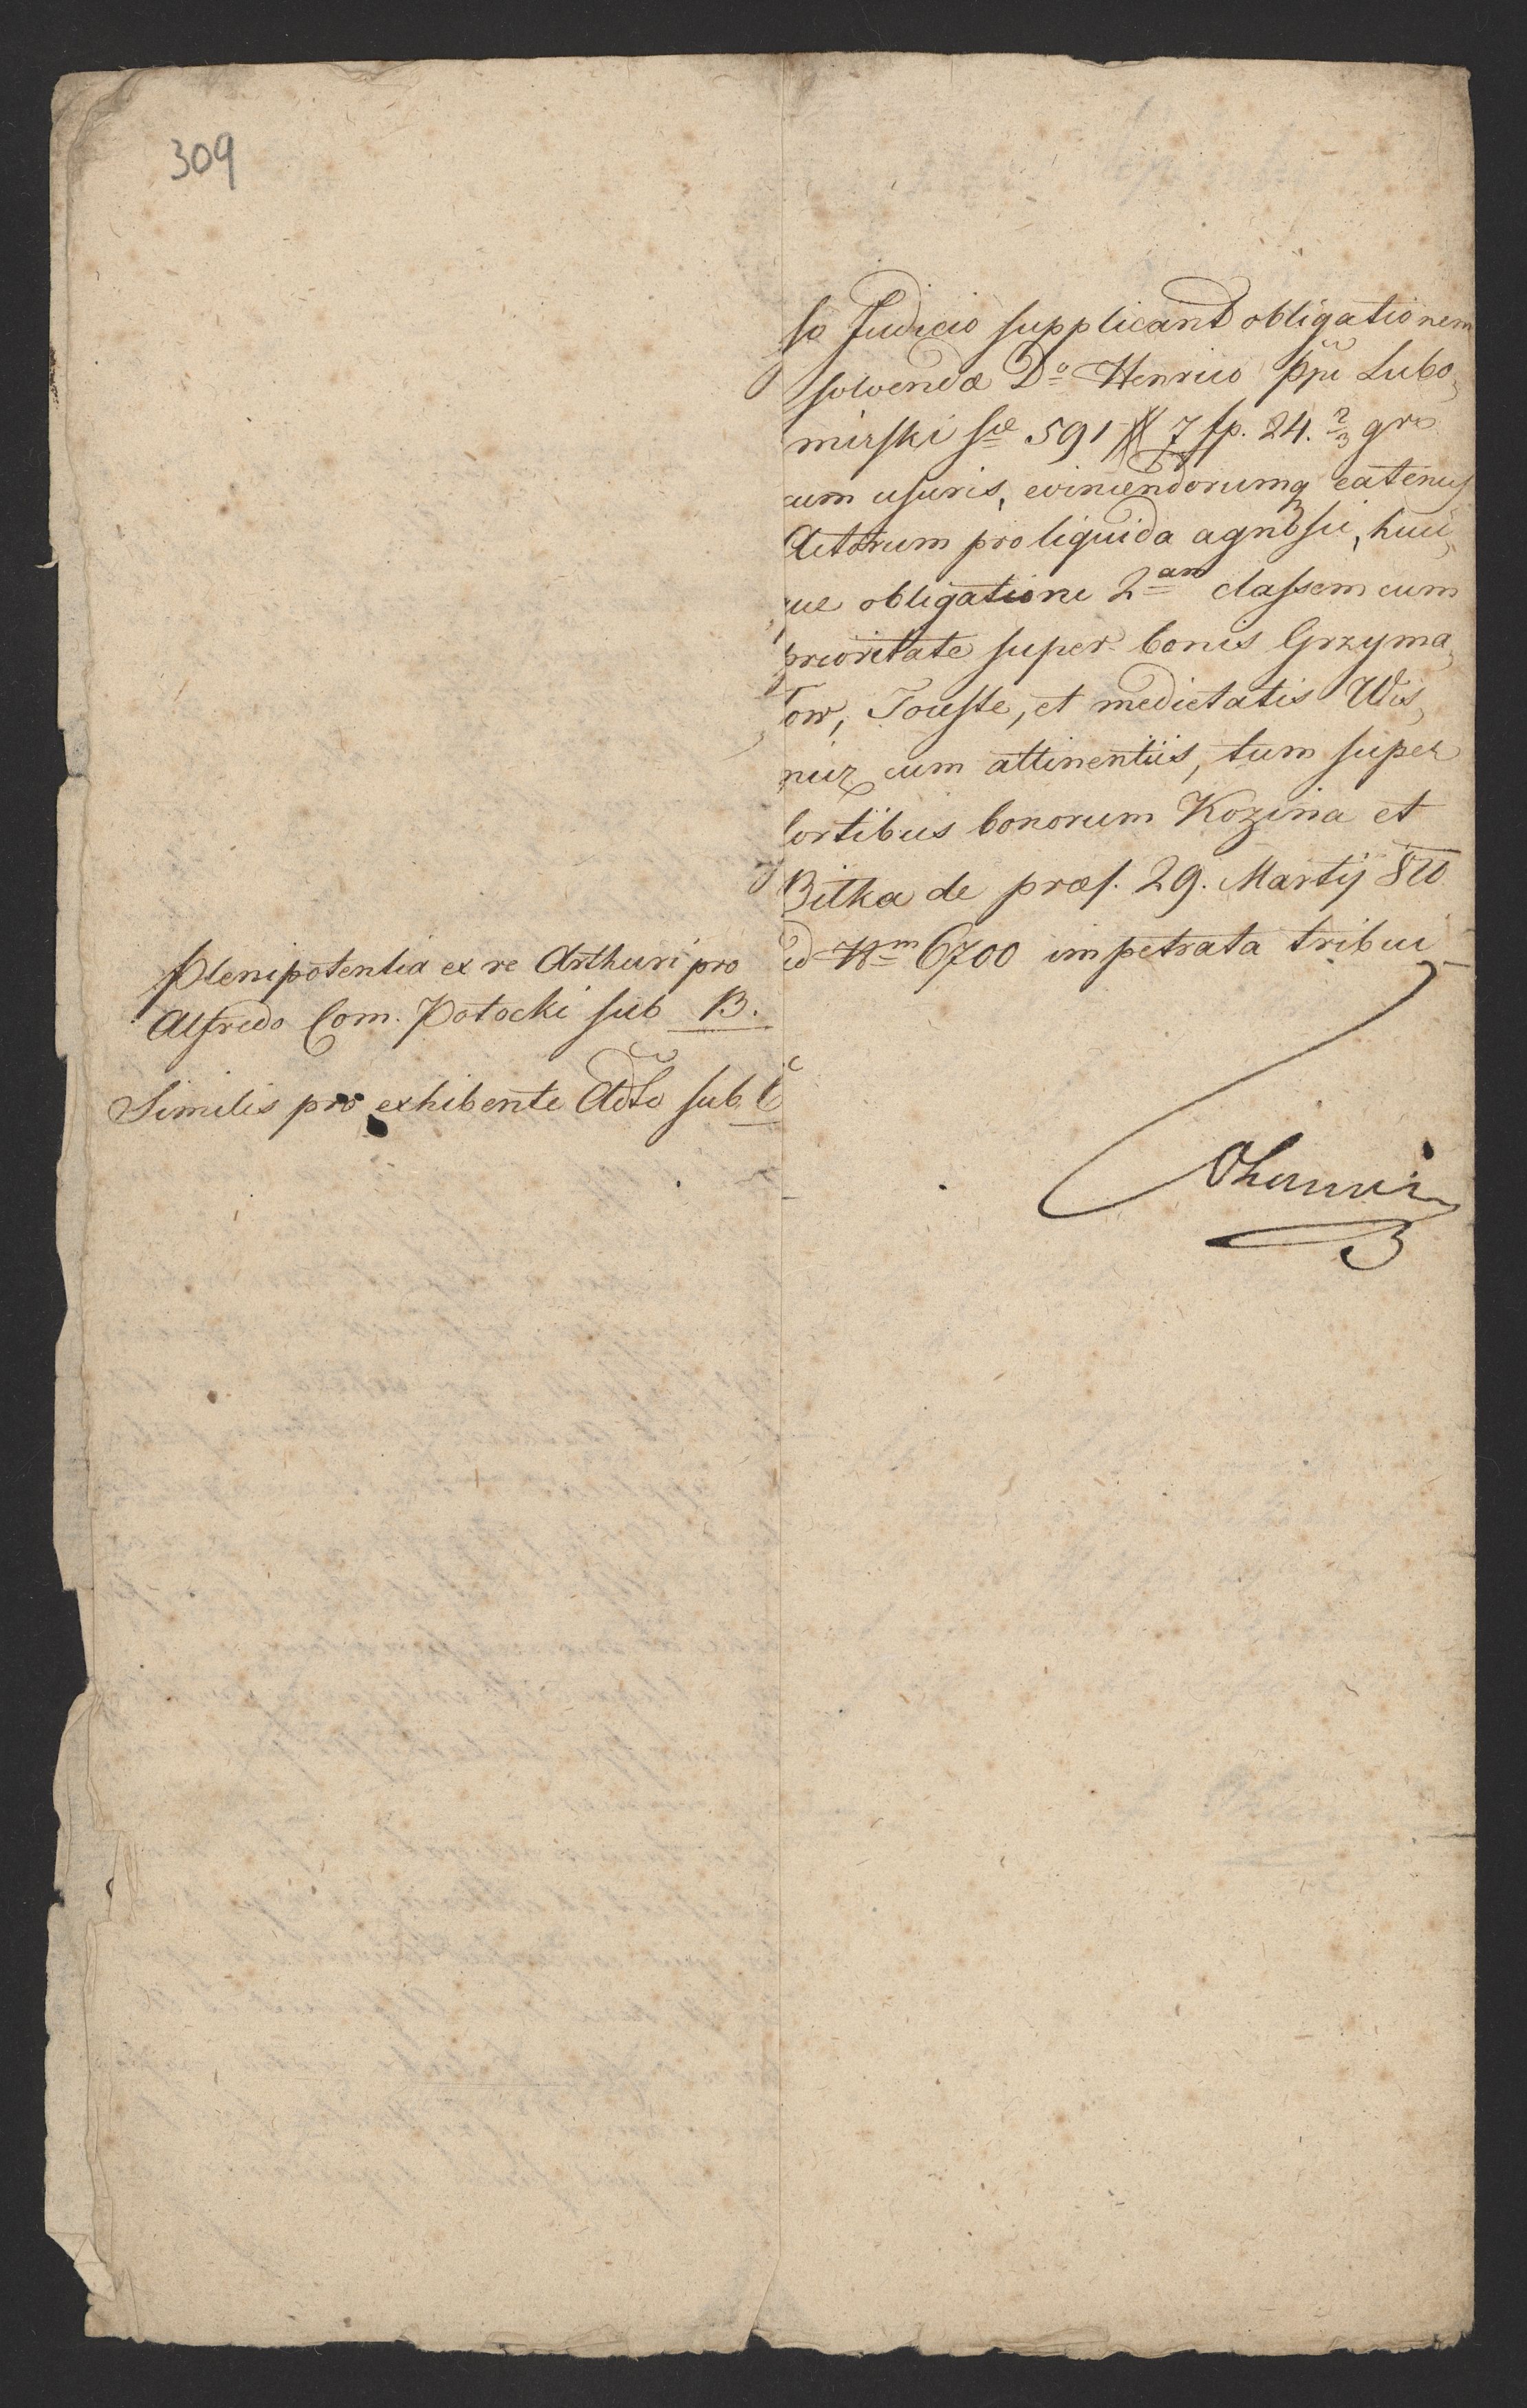 309
so Judicio supplicant obligationem
solvendæ D⁰ Henrico Ppi Lubo„
mirski sæ 591 # 7 fp. 24. 2/3 gr
cum usuris, evincendorumq eatenus
Actorum pro liquida agnosci, huic„
ue obligationi 2am classem cum
prioritate super bonis Grzyma„
tow, Touste, et medietatis Wis„
nicz cum attinentiis, tum super
sortibus bonorum Kozina et
Bitka de præs. 29. Martij
ad Nm 6700 impetrata tribui
Plenipotentia ex re Arthuri pro
Alfredo Com. Potocki sub B.
Similis pro exhibente Adto sub C